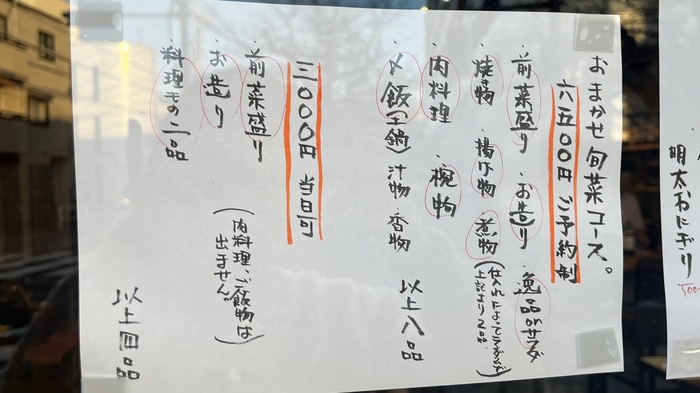 おまかせ旬菜コース。
六五〇〇円 ご予約制
・前菜盛り ・お造り ・逸品orサラダ
・焼物 ・揚げ物 ・煮物
上記より2品
・肉料理 ・椀物
・〆飯(土鍋) 汁物・香物
以上八品
三〇〇〇円 当日可
・前菜盛り
・お造り
・料理もの二品
(肉料理、ご飯物は
出ません。)
以上四品
明太おにぎり